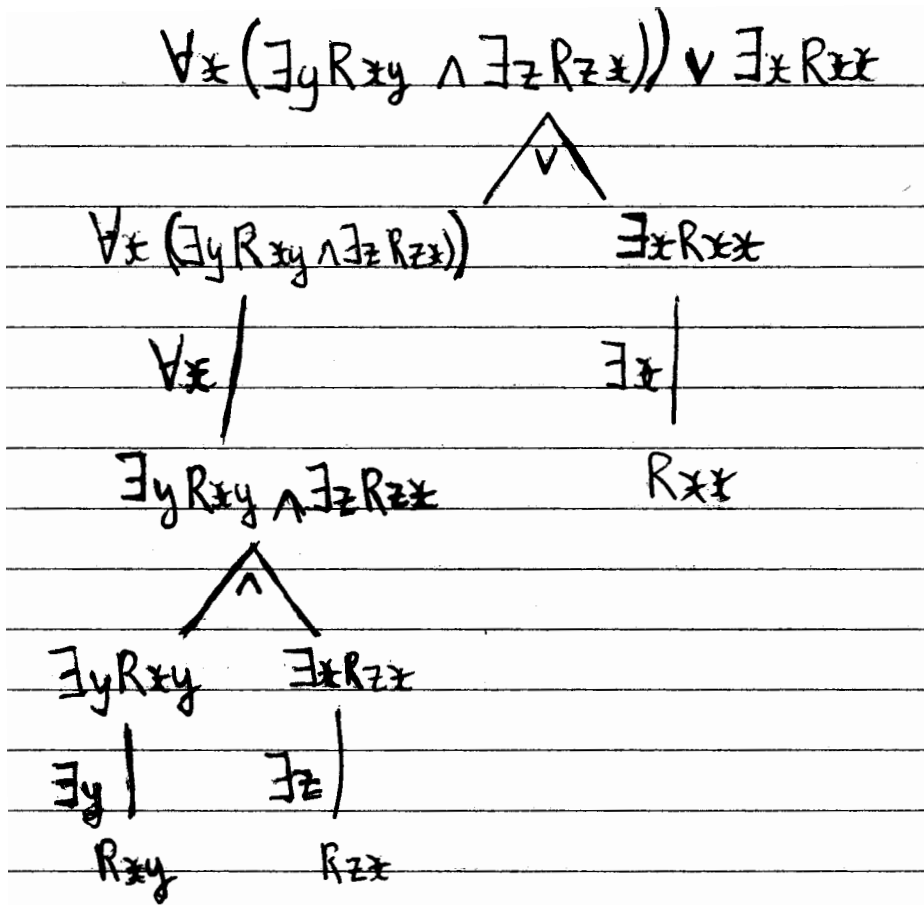 ∀x(∃yRxy ∧ ∃zRzx)) ∨ ∃xRxx
∨
∀x(∃yRxy∧∃zRzx)) ∃xRxx
∀x ∃x
∃yRxy ∧ ∃zRzx Rxx
∧
∃yRxy ∃xRzx
∃y ∃z
Rxy Rzx